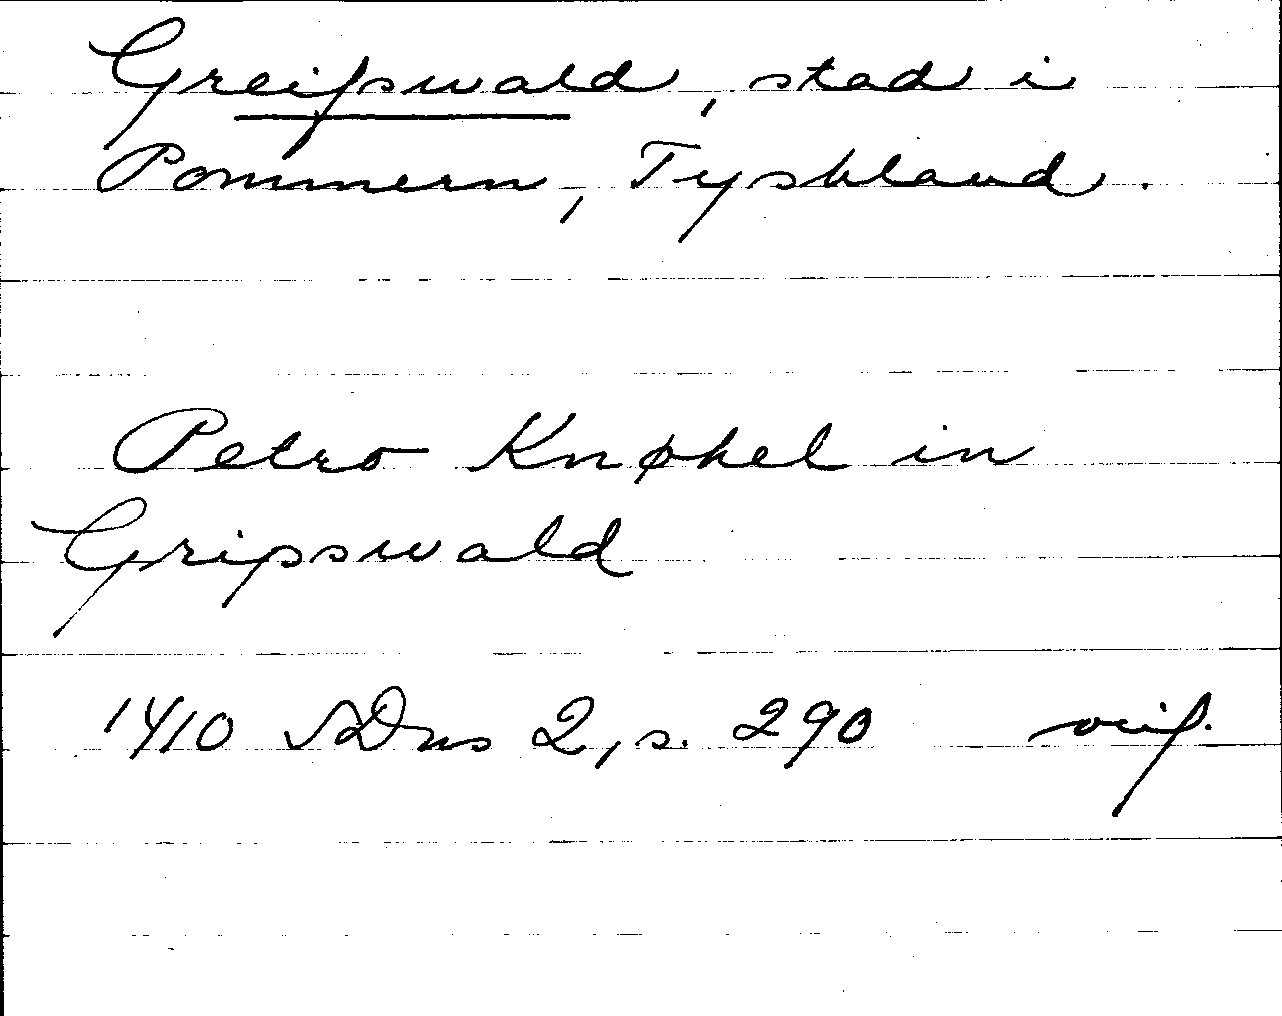 Greifswald, stad i
Pommern, Tyskland.
Petro Knøkel in
Gripswald
1410 SDns 2, s. 290